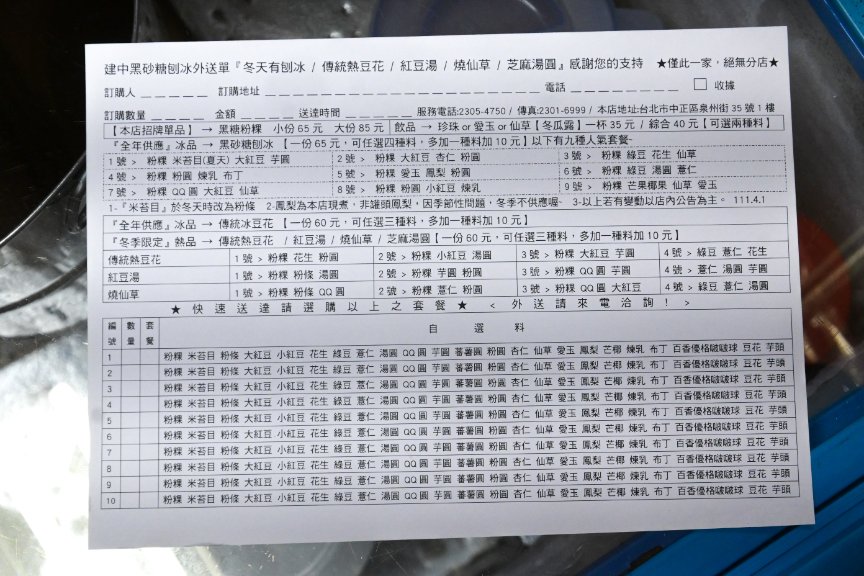 建中黑砂糖刨冰外送單『冬天有刨冰 / 傳統熱豆花 / 紅豆湯 / 燒仙草 / 芝麻湯圓』感謝您的支持 ★僅此一家，絕無分店★
訂購人 _ _ _ _ _ 訂購地址 _ _ _ _ _ _ _ _ _ _ _ _ _ _ _ _ _ _ 電話 _ _ _ _ _ _ □ 收據
訂購數量 _ _ _ _ 金額 _ _ _ _ 送達時間 _ _ _ _ 服務電話:2305-4750 / 傳真:2301-6999 / 本店地址:台北市中正區泉州街 35 號 1 樓
【本店招牌單品】 → 黑糖粉粿 小份 65 元 大份 85 元 飲品 → 珍珠 or 愛玉 or 仙草【冬瓜露】一杯 35 元 / 綜合 40 元【可選兩種料】
『全年供應』冰品 → 黑砂糖刨冰 【一份 65 元，可任選四種料，多加一種料加 10 元】以下有九種人氣套餐-
1 號 > 粉粿 米苔目(夏天) 大紅豆 芋圓 2 號 > 粉粿 大紅豆 杏仁 粉圓 3 號 > 粉粿 綠豆 花生 仙草
4 號 > 粉粿 粉圓 煉乳 布丁 5 號 > 粉粿 愛玉 鳳梨 粉圓 6 號 > 粉粿 綠豆 湯圓 薏仁
7 號 > 粉粿 QQ 圓 大紅豆 仙草 8 號 > 粉粿 粉圓 小紅豆 煉乳 9 號 > 粉粿 芒果椰果 仙草 愛玉
1-『米苔目』於冬天時改為粉條 2-鳳梨為本店現煮，非罐頭鳳梨，因季節性問題，冬季不供應喔~ 3-以上若有變動以店內公告為主。 111.4.1
『全年供應』冰品 → 傳統冰豆花 【一份 60 元，可任選三種料，多加一種料加 10 元】
『冬季限定』熱品 → 傳統熱豆花 / 紅豆湯 / 燒仙草 / 芝麻湯圓【一份 60 元，可任選三種料，多加一種料加 10 元】
傳統熱豆花 1 號 > 粉粿 花生 粉圓 2 號 > 粉粿 小紅豆 湯圓 3 號 > 粉粿 大紅豆 芋圓 4 號 > 綠豆 薏仁 花生
紅豆湯 1 號 > 粉粿 粉條 湯圓 2 號 > 粉粿 芋圓 粉圓 3 號 > 粉粿 QQ 圓 芋圓 4 號 > 薏仁 湯圓 芋圓
燒仙草 1 號 > 粉粿 粉條 QQ 圓 2 號 > 粉粿 薏仁 粉圓 3 號 > 粉粿 QQ 圓 大紅豆 4 號 > 綠豆 薏仁 湯圓
★ 快 速 送 達 請 選 購 以 上 之 套 餐 ★ < 外 送 請 來 電 洽 詢 ! >
編號 數量 套餐 自 選 料
1 粉粿 米苔目 粉條 大紅豆 小紅豆 花生 綠豆 薏仁 湯圓 QQ 圓 芋圓 蕃薯圓 粉圓 杏仁 仙草 愛玉 鳳梨 芒椰 煉乳 布丁 百香優格啵啵球 豆花 芋頭
2 粉粿 米苔目 粉條 大紅豆 小紅豆 花生 綠豆 薏仁 湯圓 QQ 圓 芋圓 蕃薯圓 粉圓 杏仁 仙草 愛玉 鳳梨 芒椰 煉乳 布丁 百香優格啵啵球 豆花 芋頭
3 粉粿 米苔目 粉條 大紅豆 小紅豆 花生 綠豆 薏仁 湯圓 QQ 圓 芋圓 蕃薯圓 粉圓 杏仁 仙草 愛玉 鳳梨 芒椰 煉乳 布丁 百香優格啵啵球 豆花 芋頭
4 粉粿 米苔目 粉條 大紅豆 小紅豆 花生 綠豆 薏仁 湯圓 QQ 圓 芋圓 蕃薯圓 粉圓 杏仁 仙草 愛玉 鳳梨 芒椰 煉乳 布丁 百香優格啵啵球 豆花 芋頭
5 粉粿 米苔目 粉條 大紅豆 小紅豆 花生 綠豆 薏仁 湯圓 QQ 圓 芋圓 蕃薯圓 粉圓 杏仁 仙草 愛玉 鳳梨 芒椰 煉乳 布丁 百香優格啵啵球 豆花 芋頭
6 粉粿 米苔目 粉條 大紅豆 小紅豆 花生 綠豆 薏仁 湯圓 QQ 圓 芋圓 蕃薯圓 粉圓 杏仁 仙草 愛玉 鳳梨 芒椰 煉乳 布丁 百香優格啵啵球 豆花 芋頭
7 粉粿 米苔目 粉條 大紅豆 小紅豆 花生 綠豆 薏仁 湯圓 QQ 圓 芋圓 蕃薯圓 粉圓 杏仁 仙草 愛玉 鳳梨 芒椰 煉乳 布丁 百香優格啵啵球 豆花 芋頭
8 粉粿 米苔目 粉條 大紅豆 小紅豆 花生 綠豆 薏仁 湯圓 QQ 圓 芋圓 蕃薯圓 粉圓 杏仁 仙草 愛玉 鳳梨 芒椰 煉乳 布丁 百香優格啵啵球 豆花 芋頭
9 粉粿 米苔目 粉條 大紅豆 小紅豆 花生 綠豆 薏仁 湯圓 QQ 圓 芋圓 蕃薯圓 粉圓 杏仁 仙草 愛玉 鳳梨 芒椰 煉乳 布丁 百香優格啵啵球 豆花 芋頭
10 粉粿 米苔目 粉條 大紅豆 小紅豆 花生 綠豆 薏仁 湯圓 QQ 圓 芋圓 蕃薯圓 粉圓 杏仁 仙草 愛玉 鳳梨 芒椰 煉乳 布丁 百香優格啵啵球 豆花 芋頭